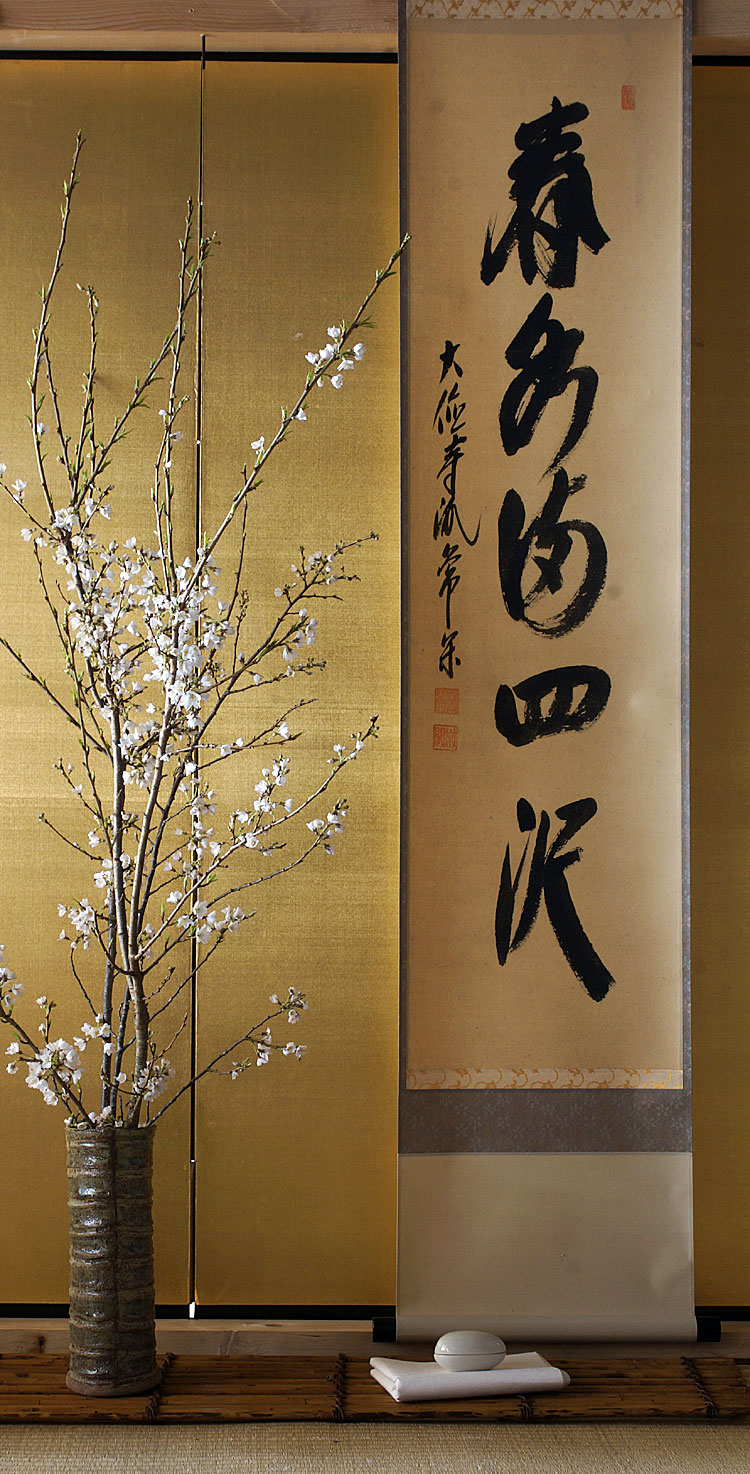 春水満四沢
大徳寺派常深